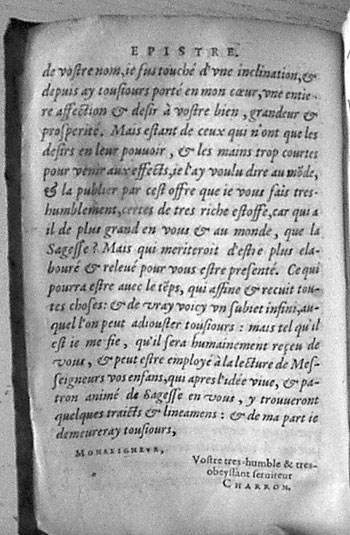 EPISTRE.
de vostre nom, ie fus touché d'vne inclination, &
depuis ay tousiours porté en mon cœur, vne entie-
re affection & desir à vostre bien, grandeur &
prosperité. Mais estant de ceux qui n'ont que les
desirs en leur pouuoir, & les mains trop courtes
pour venir aux effects, ie l'ay voulu dire au mõde,
& la publier par cest offre que ie vous fais tres-
humblement, certes de tres riche estoffe, car qu'y a
il de plus grand en vous & au monde, que la
Sagesse? Mais qui meriteroit d'estre plus ela-
bouré & releué pour vous estre presenté. Ce qui
pourra estre auec le tẽps, qui affine & recuit tou-
tes choses: & de vray voicy vn subiet infini, au-
quel l'on peut adiouster tousiours: mais tel qu'il
est ie me fie, qu'il sera humainement reçeu de
vous, & peut estre employé à la lecture de Mes-
seigneurs vos enfans, qui apres l'idée viue, & pa-
tron animé de Sagesse en vous, y trouueront
quelques traicts & lineamens: & de ma part ie
demeureray tousiours,
MONSEIGNEVR,
Vostre tres-humble & tres-
obeyssant seruiteur
CHARRON.